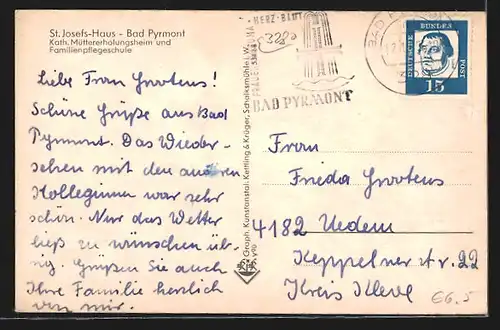 St. Josefs-Haus - Bad Pyrmont
Kath. Müttererholungsheim und
Familienpflegeschule
Liebe Frau Grootens!
Schöne Grüße aus Bad
Pyrmont. Das Wieder-
sehen mit den anderen
Kolleginnen war sehr
schön. Nur das Wetter
ließ zu wünschen üb-
rig. Grüßen Sie auch
Ihre Familie herzlich
von mir.
Graph. Kunstanstalt Kettling & Krüger, Schalksmühle i. W.
HERZ-BLUT
BAD PYRMONT
BAD
DEUTSCHE
BUNDES
POST
15
Frau
Frieda Grootens
4182 Uedem
Keppelner str. 22
Kreis Kleve
66.5